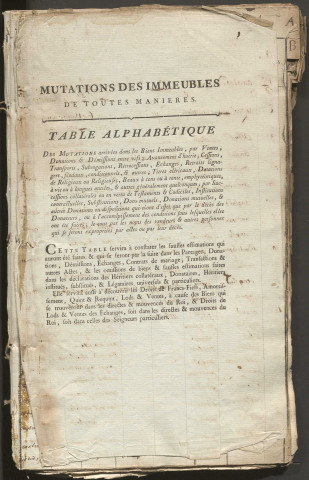 MUTATIONS DES IMMEUBLES
DE TOUTES MANIERES.
TABLE ALPHABÉTIQUE
DES MUTATIONS arrivées dans les Biens Immeubles, par Ventes,
Donations & Démissions entre vifs, Avancemens d'hoirie, Cessions,
Transports, Subrogations, Rétrocessions, Echanges, Retraits ligna-
gers, féodaux, conditionnels, & autres; Titres cléricaux, Dotations
de Religieux ou Religieuses, Baux à cens ou à rente, emphytéotiques,
à vie ou à longues années, & autres généralement quelconques; par Suc-
cessions collatérales ou en vertu de Testamens & Codiciles, Institutions
contractuelles, Substitutions, Dons mutuels, Donations mutuelles, &
autres Donations ou dispositions qui n'ont d'effet que par le décès des
Donateurs, ou à l'accomplissement des conditions sous lesquelles elles
ont été faites; le tout par les noms des vendeurs & autres personnes
qui se seront expropriées par actes ou par leur décès.
CETTE TABLE servira à constater les fausses estimations qui
auront été faites & qui se feront par la suite dans les Partages, Dona-
tions, Démissions, Echanges, Contrats de mariage, Transactions &
autres Actes, & les omissions de biens & fausses estimations faites
dans les déclarations des Héritiers collatéraux, Donataires, Héritiers
institués, substitués, & Légataires universels & particuliers.
Elle servira aussi à découvrir les Droits de Francs-Fiefs, Amortis-
sement, Quint & Requint, Lods & Ventes, à cause des Biens qui
se trouveront dans les directes & mouvances du Roi, & Droits de
Lods & Ventes des Echanges, soit dans les directes & mouvances du
Roi, soit dans celles des Seigneurs particuliers.
A
B